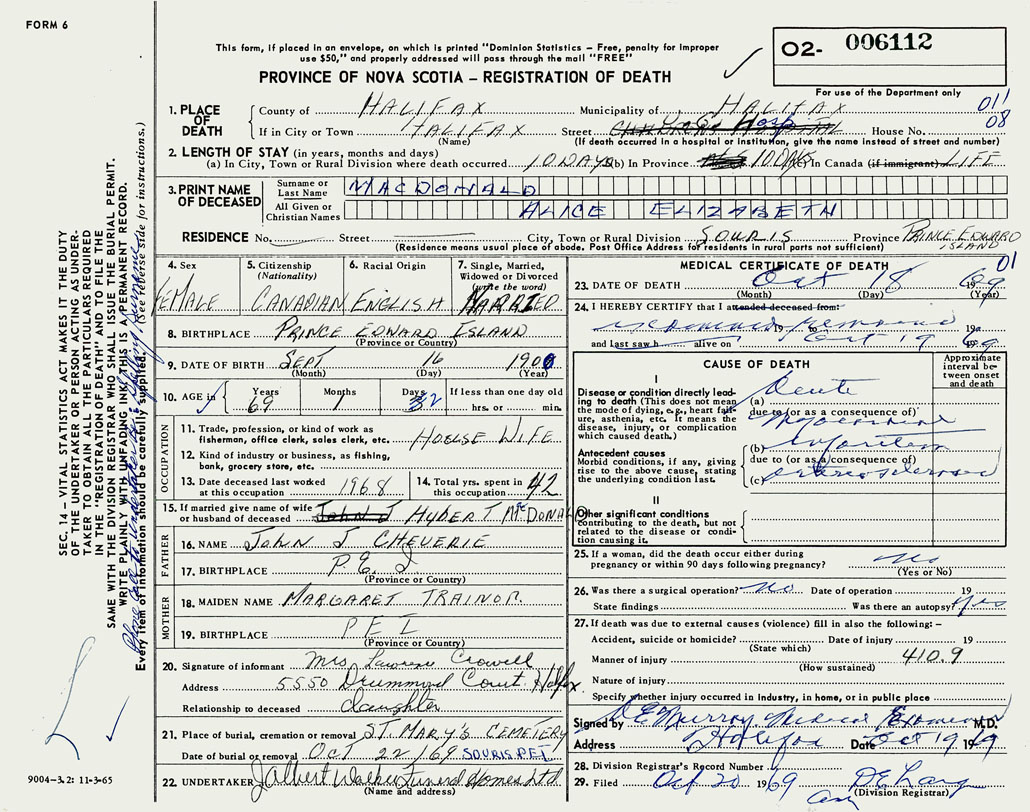 FORM 6
This form, if placed in an envelope, on which is printed "Dominion Statistics – Free, penalty for improper
use $50," and properly addressed will pass through the mail "FREE"
PROVINCE OF NOVA SCOTIA – REGISTRATION OF DEATH
02- 006112
For use of the Department only
011
08
1. PLACE OF DEATH
County of HALIFAX Municipality of HALIFAX
If in City or Town HALIFAX Street V.G. Hosp House No.
(Name) (If death occurred in a hospital or institution, give the name instead of street and number)
2. LENGTH OF STAY (in years, months and days)
(a) In City, Town or Rural Division where death occurred 10 DAYS (b) In Province 10 DAYS In Canada (if immigrant) LIFE
3. PRINT NAME OF DECEASED
Surname or Last Name MACDONALD
All Given or Christian Names ALICE ELIZABETH
RESIDENCE No. Street City, Town or Rural Division SOURIS Province PRINCE EDWARD ISLAND
(Residence means usual place of abode. Post Office Address for residents in rural parts not sufficient)
4. Sex FEMALE
5. Citizenship (Nationality) CANADIAN
6. Racial Origin ENGLISH
7. Single, Married, Widowed or Divorced (write the word) MARRIED
8. BIRTHPLACE PRINCE EDWARD ISLAND
(Province or Country)
9. DATE OF BIRTH SEPT 16 1900
(Month) (Day) (Year)
10. AGE in Years 69 Months 1 Days 2 If less than one day old hrs. or min.
OCCUPATION
11. Trade, profession, or kind of work as fisherman, office clerk, sales clerk, etc. HOUSE WIFE
12. Kind of industry or business, as fishing, bank, grocery store, etc.
13. Date deceased last worked at this occupation 1968
14. Total yrs. spent in this occupation 42
15. If married give name of wife or husband of deceased John J HUBERT McDONALD
FATHER
16. NAME JOHN J CHEVERIE
17. BIRTHPLACE P.E.I
(Province or Country)
MOTHER
18. MAIDEN NAME MARGARET TRAINOR
19. BIRTHPLACE PEI
(Province or Country)
20. Signature of informant Mrs Lawrence Crowell
Address 5550 Drummond Court Halifax
Relationship to deceased daughter
21. Place of burial, cremation or removal ST. MARY'S CEMETERY
Date of burial or removal OCT 22/69 SOURIS P.E.I.
22. UNDERTAKER J Albert Walker Funeral Homes Ltd
(Name and address)
MEDICAL CERTIFICATE OF DEATH 01
23. DATE OF DEATH Oct 18 1969
(Month) (Day) (Year)
24. I HEREBY CERTIFY that I attended deceased from:
examined remains
19 to 19
and last saw h alive on Oct 19 69
CAUSE OF DEATH
Approximate interval between onset and death
I
Disease or condition directly leading to death (This does not mean the mode of dying, e.g., heart failure, asthenia, etc. It means the disease, injury, or complication which caused death.)
(a) Acute
due to (or as a consequence of) myocardial
Antecedent causes
Morbid conditions, if any, giving rise to the above cause, stating the underlying condition last.
(b) infarction
due to (or as a consequence of)
(c) arteriosclerosis
II
Other significant conditions contributing to the death, but not related to the disease or condition causing it.
25. If a woman, did the death occur either during pregnancy or within 90 days following pregnancy? no
(Yes or No)
26. Was there a surgical operation? no Date of operation 19
State findings Was there an autopsy? Yes
27. If death was due to external causes (violence) fill in also the following: –
Accident, suicide or homicide? Date of injury 19
(State which)
Manner of injury 410.9
(How sustained)
Nature of injury
Specify whether injury occurred in industry, in home, or in public place
Signed by D E Murray Medical Examiner M.D.
Address Halifax Date Oct 19 1969
28. Division Registrar's Record Number
29. Filed Oct 20 1969
(Division Registrar)
SEC. 14 – VITAL STATISTICS ACT MAKES IT THE DUTY
OF THE UNDERTAKER OR PERSON ACTING AS UNDER-
TAKER TO OBTAIN ALL THE PARTICULARS REQUIRED
IN THE "REGISTRATION OF DEATH" AND TO FILE THE
SAME WITH THE DIVISION REGISTRAR WHO SHALL ISSUE THE BURIAL PERMIT.
WRITE PLAINLY WITH UNFADING INK. THIS IS A PERMANENT RECORD.
Every item of information should be carefully supplied. (See reverse side for instructions.)
9004-3.2: 11-3-65